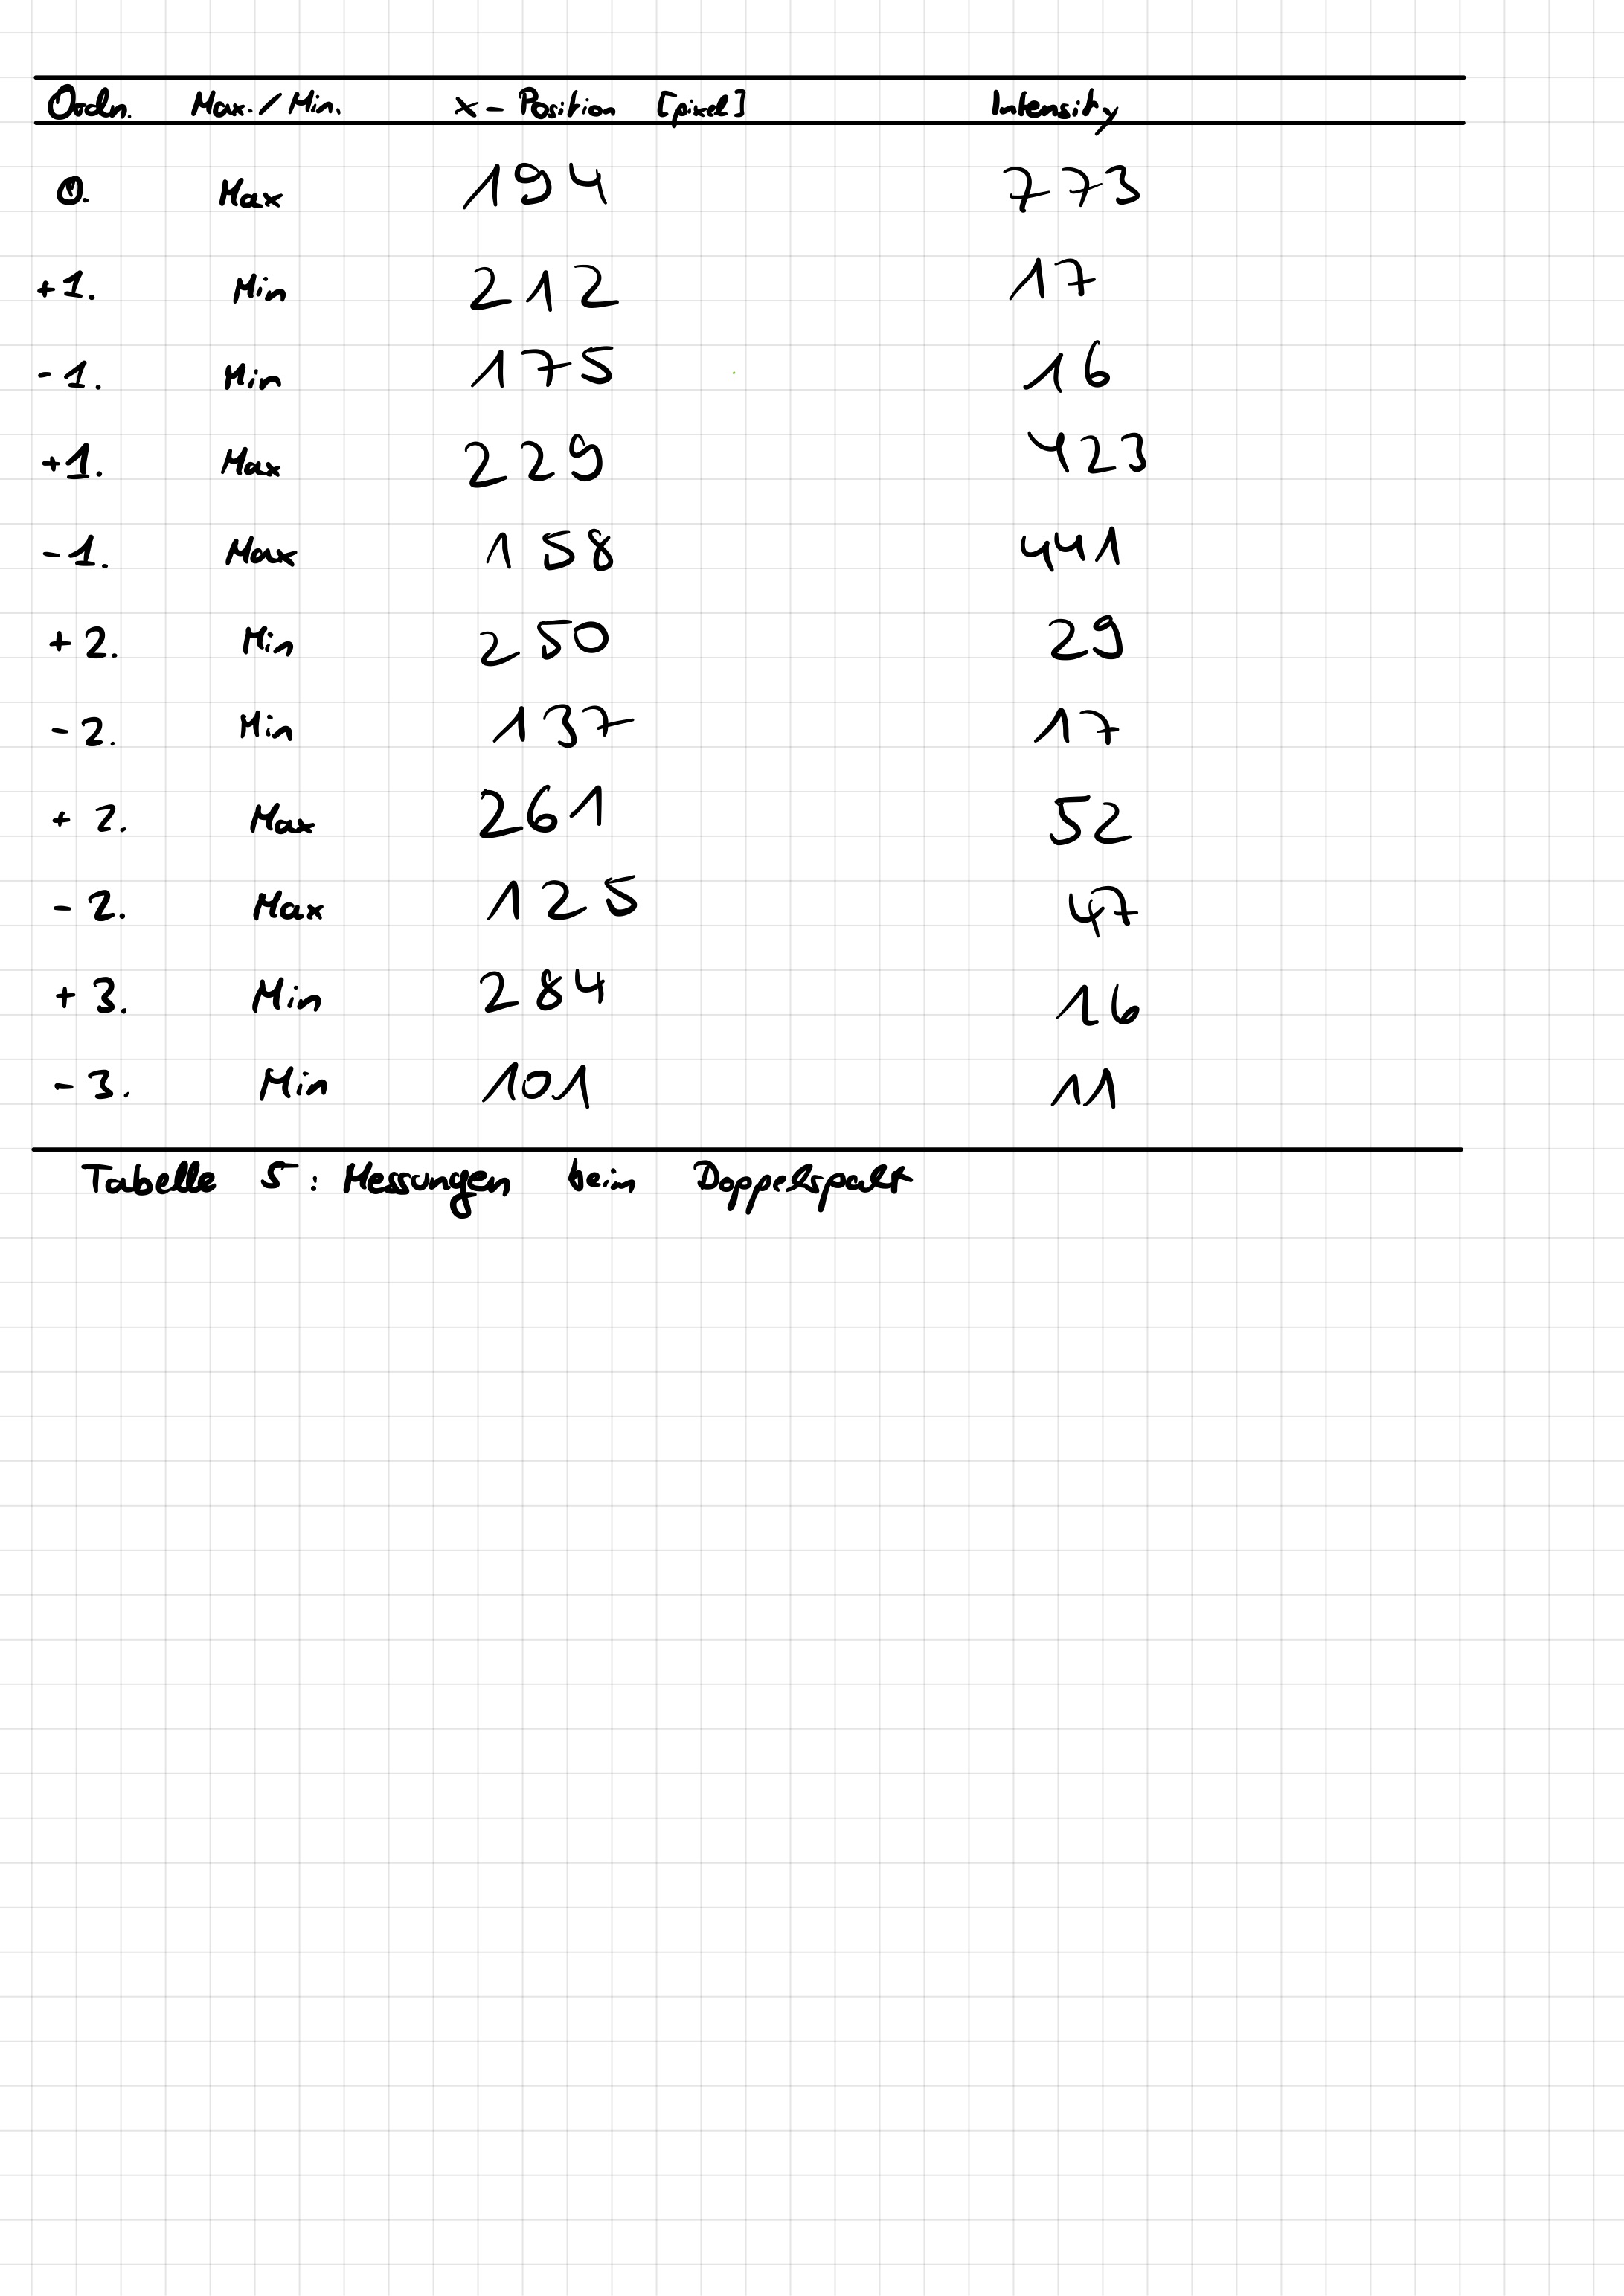 Ordn. Max./Min. x-Position [pixel] Intensity
0. Max 194 773
+1. Min 212 17
-1. Min 175 16
+1. Max 229 423
-1. Max 158 441
+2. Min 250 29
-2. Min 137 17
+2. Max 261 52
-2. Max 125 47
+3. Min 284 16
-3. Min 101 11
Tabelle 5: Messungen beim Doppelspalt